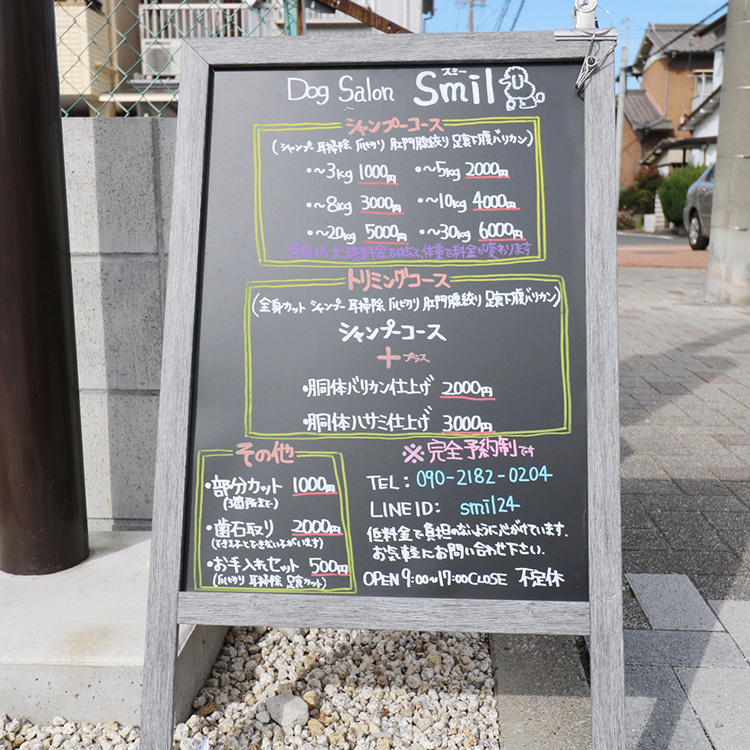 Dog Salon Smil
スミー
シャンプーコース
(シャンプー 耳掃除 爪切り 肛門腺絞り 足裏下腹バリカン)
・〜3kg 1000円 ・〜5kg 2000円
・〜8kg 3000円 ・〜10kg 4000円
・〜20kg 5000円 ・〜30kg 6000円
当店は犬種料金ではなく、体重で料金が変わります
トリミングコース
(全身カット シャンプー 耳掃除 爪切り 肛門腺絞り 足裏下腹バリカン)
シャンプーコース
+プラス
・胴体バリカン仕上げ 2000円
・胴体ハサミ仕上げ 3000円
※完全予約制です
その他
・部分カット 1000円
(3箇所まで)
・歯石取り 2000円
(できる子とできない子がいます)
・お手入れセット 500円
(爪切り 耳掃除 足裏カット)
TEL: 090-2182-0204
LINE ID: smil24
低料金で負担のないように心がけています.
お気軽にお問い合わせ下さい.
OPEN 9:00〜17:00 CLOSE 不定休